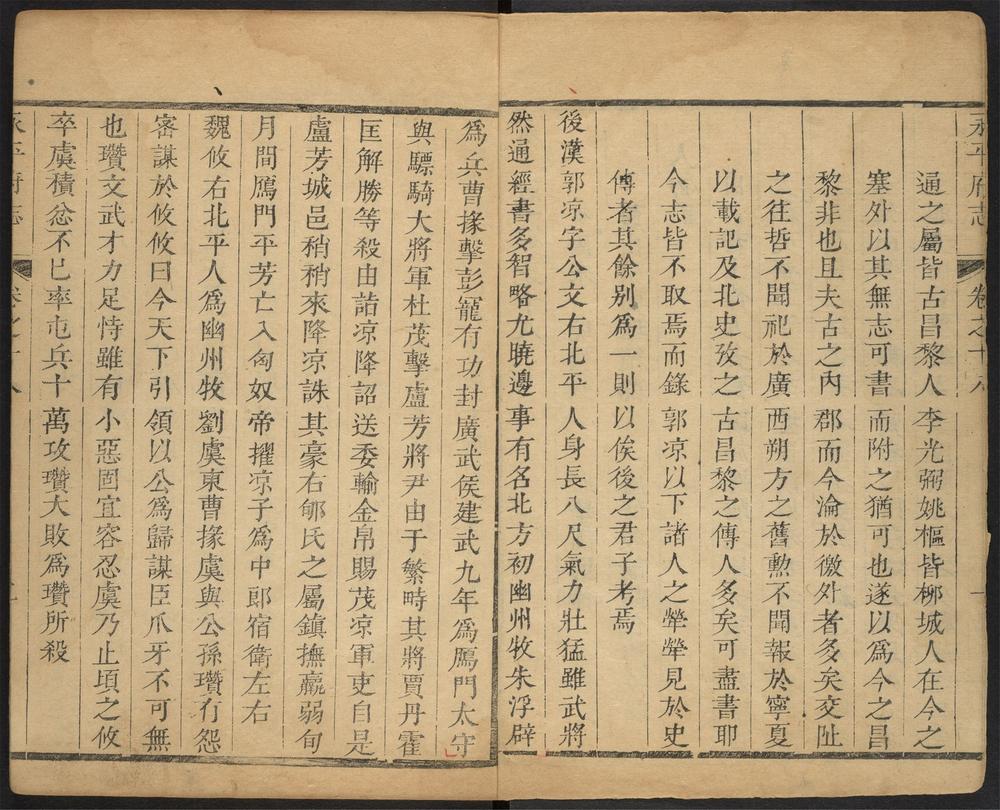 永平府志 卷之十八 一
通之屬皆古昌黎人李光弼姚樞皆柳城人在今之
塞外以其無志可書而附之猶可也遂以爲今之昌
黎非也且夫古之內郡而今淪於徼外者多矣交阯
之往哲不聞祀於廣西朔方之舊勲不聞報於寧夏
以載記及北史攷之古昌黎之傳人多矣可盡書耶
今志皆不取焉而錄郭凉以下諸人之犖犖見於史
傳者其餘别爲一則以俟後之君子考焉
後漢郭凉字公文右北平人身長八尺氣力壯猛雖武將
然通經書多智略尤曉邊事有名北方初幽州牧朱浮辟
爲兵曹掾擊彭寵有功封廣武侯建武九年爲鴈門太守
與驃騎大將軍杜茂擊盧芳將尹由于繁畤其將賈丹霍
匡解勝等殺由詣凉降詔送委輸金帛賜茂凉軍吏自是
盧芳城邑稍稍來降凉誅其豪右郇氏之屬鎮撫羸弱旬
月間鴈門平芳亡入匈奴帝擢凉子爲中郎宿衛左右
魏攸右北平人爲幽州牧劉虞東曹掾虞與公孫瓚有怨
密謀於攸攸曰今天下引領以公爲歸謀臣爪牙不可無
也瓚文武才力足恃雖有小惡固宜容忍虞乃止頃之攸
卒虞積忿不已率屯兵十萬攻瓚大敗爲瓚所殺
永平府志 卷之十八